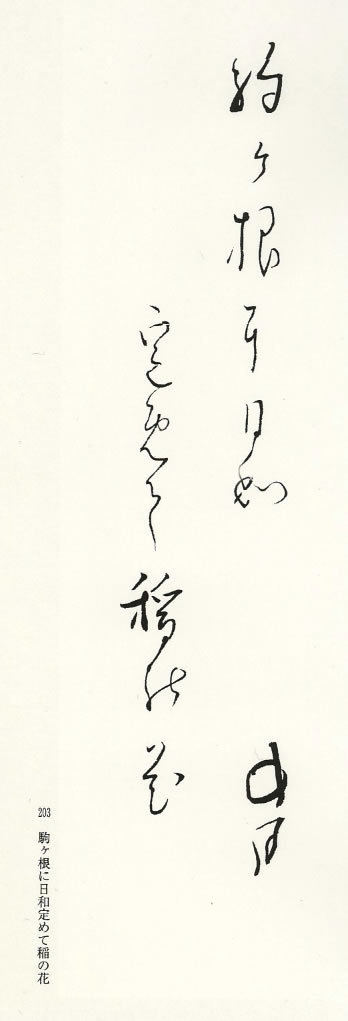 駒ヶ根耳日和
定免て稲能花
井月
203 駒ヶ根に日和定めて稲の花